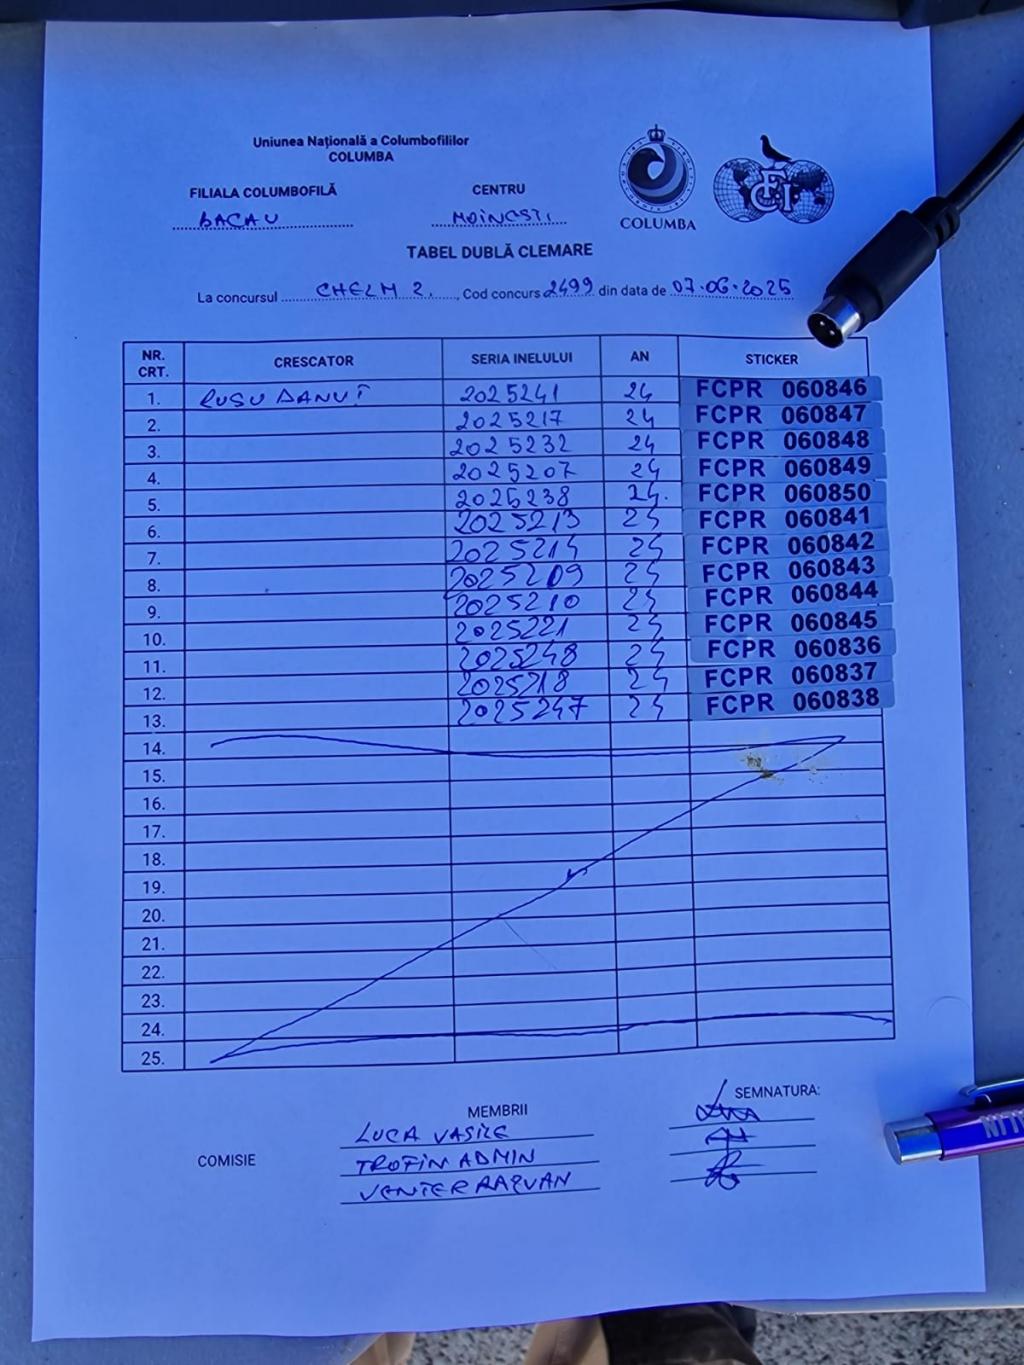 Uniunea Națională a Columbofililor
COLUMBA
FILIALA COLUMBOFILĂ CENTRU
BACAU MOINESTI
COLUMBA FCI
TABEL DUBLĂ CLEMARE
La concursul CHELM 2. , Cod concurs 2499 din data de 07.06.2025
NR. CRT. CRESCATOR SERIA INELULUI AN STICKER
1. RUSU DANUȚ 2025241 24 FCPR 060846
2. 2025217 24 FCPR 060847
3. 2025232 24 FCPR 060848
4. 2025207 24 FCPR 060849
5. 2025238 24. FCPR 060850
6. 2025213 24 FCPR 060841
7. 2025214 24 FCPR 060842
8. 2025209 24 FCPR 060843
9. 2025210 24 FCPR 060844
10. 2025221 24 FCPR 060845
11. 2025248 24 FCPR 060836
12. 2025218 24 FCPR 060837
13. 2025247 24 FCPR 060838
14.
15.
16.
17.
18.
19.
20.
21.
22.
23.
24.
25.
MEMBRII SEMNATURA:
COMISIE
LUCA VASILE
TROFIN ADMIN
VENTER RAZVAN